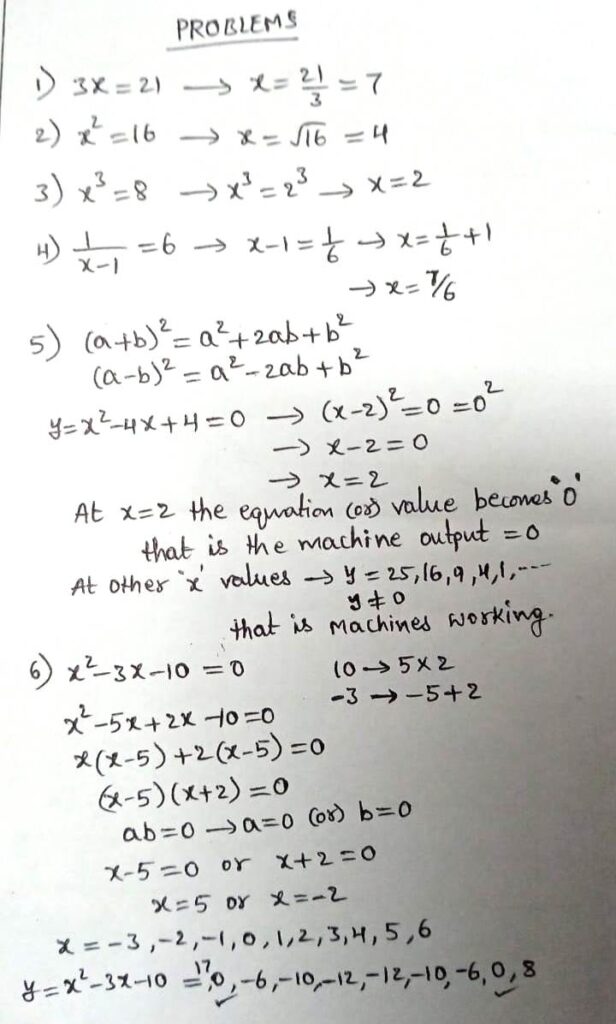 PROBLEMS
1) 3x = 21 → x = 21/3 = 7
2) x² = 16 → x = √16 = 4
3) x³ = 8 → x³ = 2³ → x = 2
4) 1/(x-1) = 6 → x-1 = 1/6 → x = 1/6 + 1
→ x = 7/6
5) (a+b)² = a² + 2ab + b²
(a-b)² = a² - 2ab + b²
y = x² - 4x + 4 = 0 → (x-2)² = 0 = 0²
→ x - 2 = 0
→ x = 2
At x=2 the equation (or) value becomes '0'
that is the machine output = 0
At other 'x' values → y = 25, 16, 9, 4, 1, ---
y ≠ 0
that is Machines working.
6) x² - 3x - 10 = 0 10 → 5x2
-3 → -5+2
x² - 5x + 2x - 10 = 0
x(x-5) + 2(x-5) = 0
(x-5)(x+2) = 0
ab = 0 → a=0 (or) b=0
x-5 = 0 or x+2 = 0
x = 5 or x = -2
x = -3, -2, -1, 0, 1, 2, 3, 4, 5, 6
y = x² - 3x - 10 = 17, 0, -6, -10, -12, -12, -10, -6, 0, 8